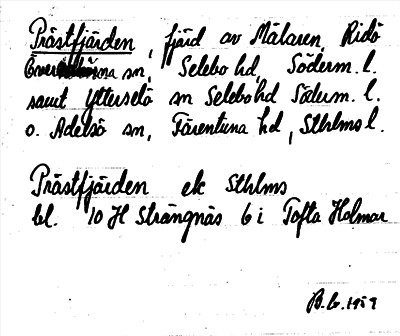 Prästfjärden, fjärd av Mälaren, Ridö
sn, Selebo hd, Söderm. l.
samt Ytterselö sn Selebo hd Söderm. l.
o. Adelsö sn, Färentuna hd, Sthlms l.
Prästfjärden ek Sthlms
bl. 10 H Strängnäs 6 i Tofta Holmar
B.G. 1959